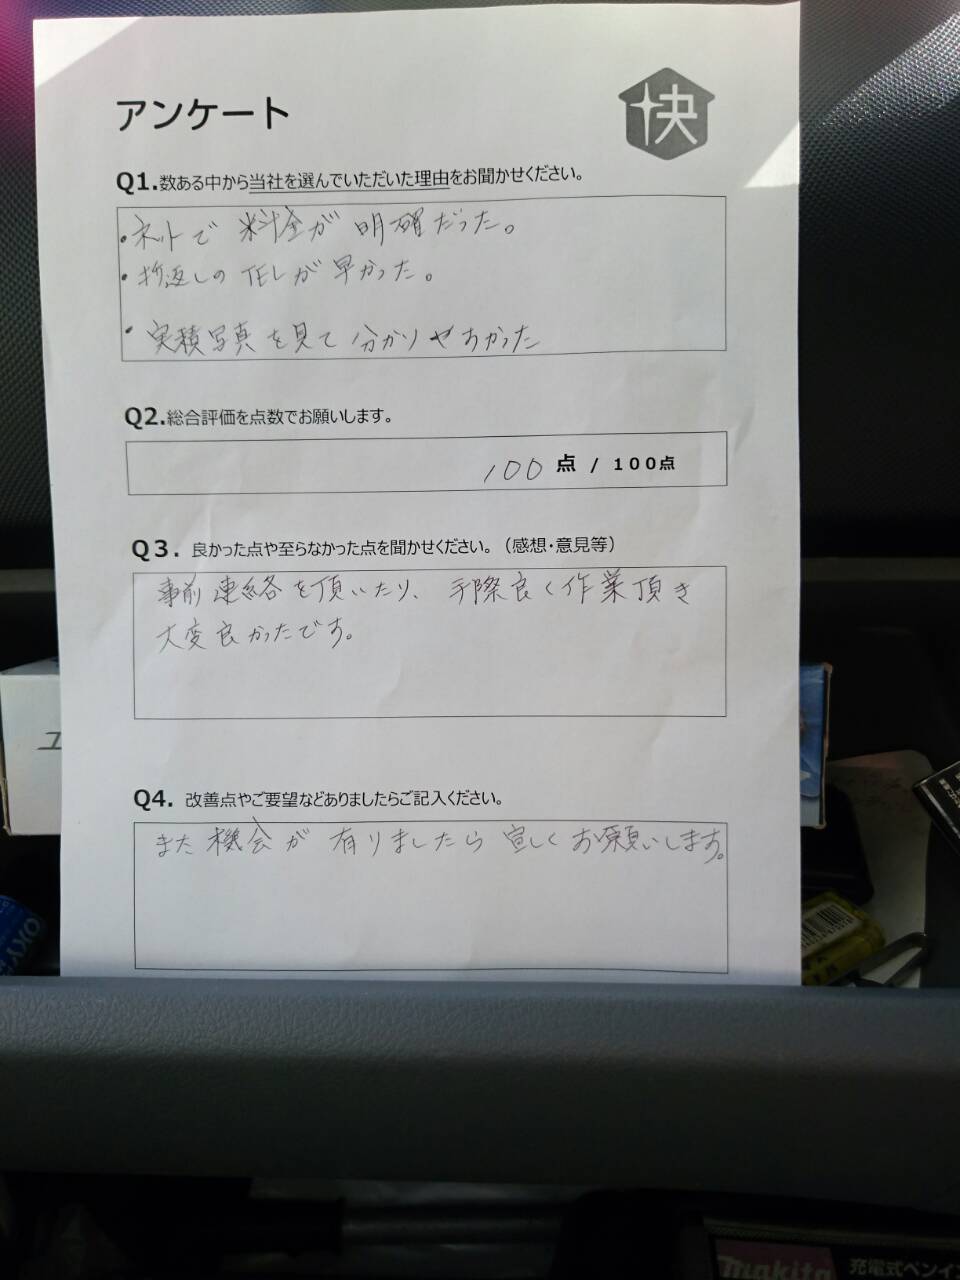 アンケート
快
Q1.数ある中から当社を選んでいただいた理由をお聞かせください。
・ネットで 料金が 明確だった。
・折返しの TELが 早かった。
・実積写真を見て 分かりやすかった
Q2.総合評価を点数でお願いします。
100 点 / 100点
Q3. 良かった点や至らなかった点を聞かせください。(感想・意見等)
事前連絡を頂いたり、手際良く作業頂き
大変良かったです。
Q4. 改善点やご要望などありましたらご記入ください。
また 機会が 有りましたら 宜しくお願いします。
Makita
充電式ペンイン